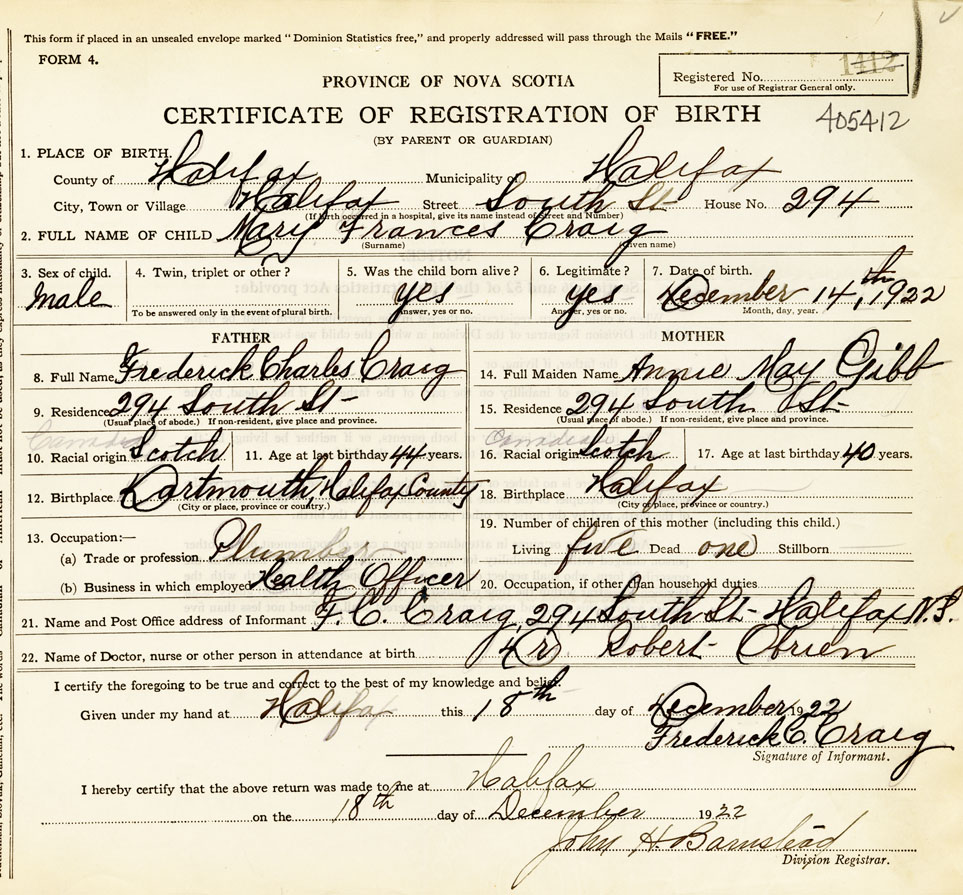 This form if placed in an unsealed envelope marked "Dominion Statistics free," and properly addressed will pass through the Mails "FREE."
FORM 4.
1412
Registered No.
For use of Registrar General only.
PROVINCE OF NOVA SCOTIA
CERTIFICATE OF REGISTRATION OF BIRTH
405412
(BY PARENT OR GUARDIAN)
1. PLACE OF BIRTH.
County of Halifax Municipality of Halifax
City, Town or Village Halifax Street South St House No. 294
(If birth occurred in a hospital, give its name instead of Street and Number)
2. FULL NAME OF CHILD Mary Frances Craig
(Surname) (Given name)
3. Sex of child. 4. Twin, triplet or other? 5. Was the child born alive? 6. Legitimate? 7. Date of birth.
male yes yes December 14th, 1922
To be answered only in the event of plural birth. Answer, yes or no. Answer, yes or no. Month, day, year.
FATHER MOTHER
8. Full Name Frederick Charles Craig 14. Full Maiden Name Annie May Gibb
9. Residence 294 South St- 15. Residence 294 South St-
(Usual place of abode.) If non-resident, give place and province. (Usual place of abode.) If non-resident, give place and province.
Canadian Canadian
10. Racial origin Scotch 11. Age at last birthday 44 years. 16. Racial origin Scotch 17. Age at last birthday 40 years.
12. Birthplace Dartmouth, Halifax County 18. Birthplace Halifax
(City or place, province or country.) (City or place, province or country.)
13. Occupation:— 19. Number of children of this mother (including this child.)
(a) Trade or profession Plumber Living five Dead one Stillborn
(b) Business in which employed Health Officer 20. Occupation, if other than household duties
21. Name and Post Office address of Informant F. C. Craig, 294 South St- Halifax N.S.
22. Name of Doctor, nurse or other person in attendance at birth Dr Robert Obrien
I certify the foregoing to be true and correct to the best of my knowledge and belief.
Given under my hand at Halifax this 18th day of December 1922
Frederick C. Craig
Signature of Informant.
I hereby certify that the above return was made to me at Halifax
on the 18th day of December 1922
John H Barnstead
Division Registrar.